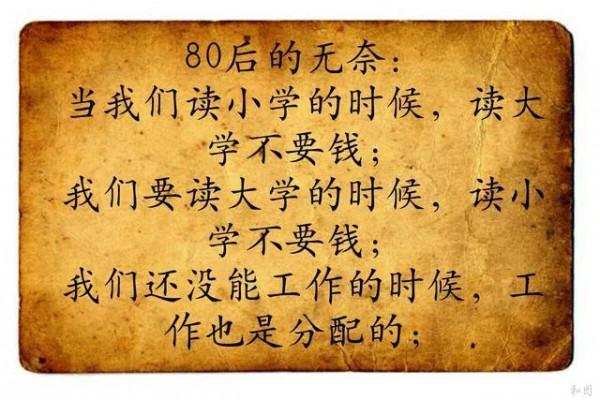 80后的无奈:
当我们读小学的时候，读大
学不要钱；
我们要读大学的时候，读小
学不要钱；
我们还没能工作的时候，工
作也是分配的；
和图